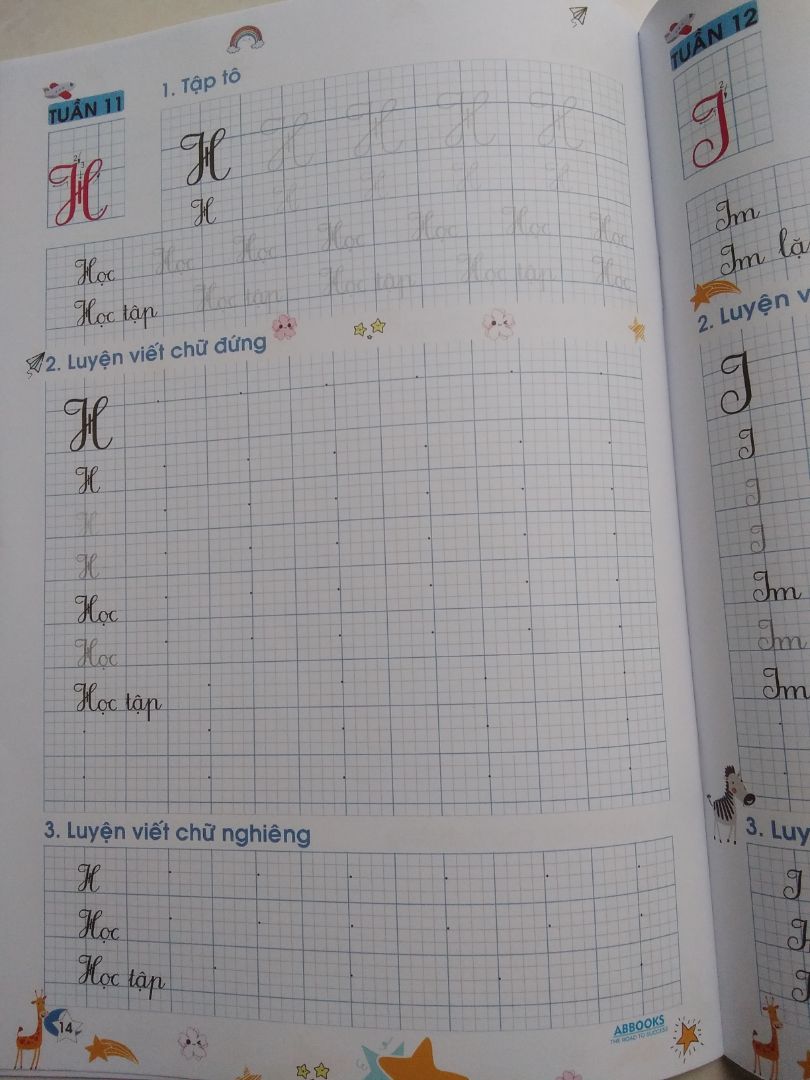 TUẦN 11
1. Tập tô
H
H H H H H H
H H H H H H
Học Học Học Học Học Học Học
Học tập Học tập Học tập Học tập Học
2. Luyện viết chữ đứng
H
H
H
H
Học
Học
Học tập
3. Luyện viết chữ nghiêng
H
Học
Học tập
14
ABBOOKS
THE ROAD TO SUCCESS
TUẦN 12
I
Im
Im
2. Luyện
I
I
I
I
Im
Im
Im
3.
I